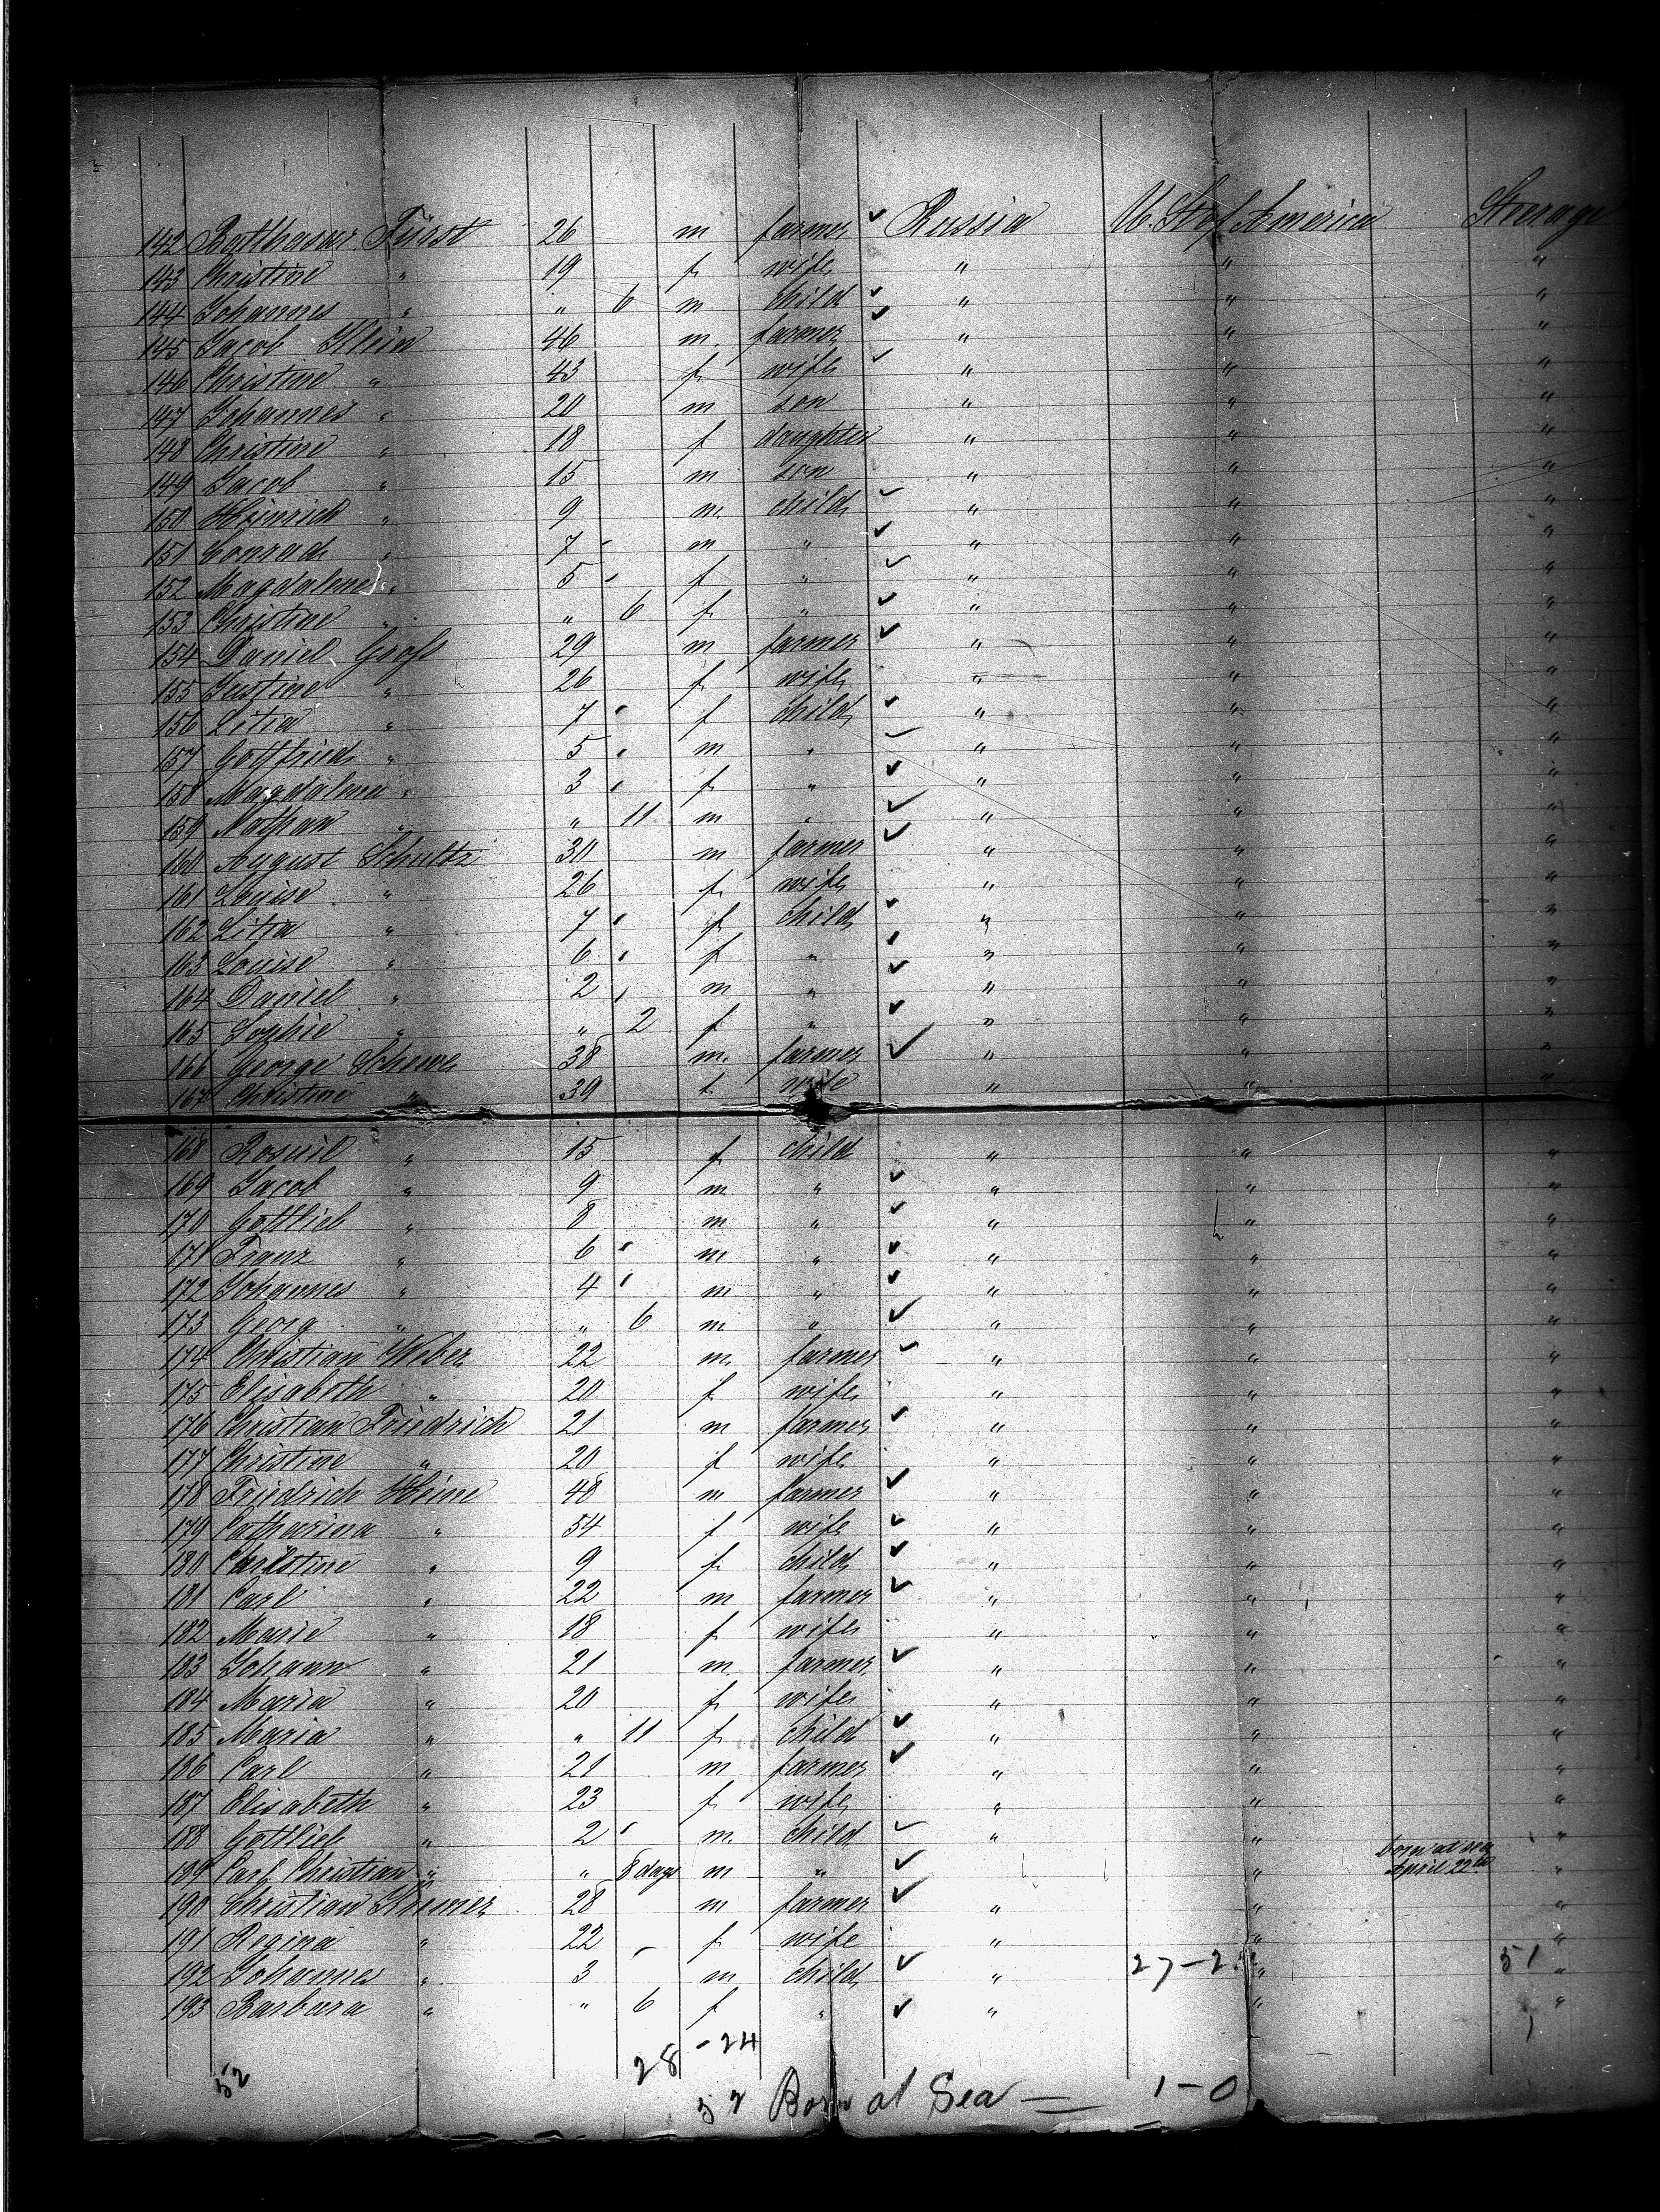 142 Balthasar Fürst 26 m farmer ✓ Russia U. St. of America Steerage
143 Christine " 19 f wife " " "
144 Johannes " " 6 m child ✓ " " "
145 Jacob Klein 46 m. farmer ✓ " " "
146 Christine " 43 f wife ✓ " " "
147 Johannes " 20 m son " " "
148 Christine " 18 f daughter " " "
149 Jacob " 15 m son " " "
150 Heinrich " 9 m child ✓ " " "
151 Conrad " 7 m " ✓ " " "
152 Magdalene " 5 f " ✓ " " "
153 Christine " " 6 f " ✓ " " "
154 Daniel Groß 29 m farmer ✓ " " "
155 Justine " 26 f wife " " "
156 Litia " 7 f child ✓ " " "
157 Gottfried " 5 m " ✓ " " "
158 Magdalena " 3 f " ✓ " " "
159 Nathan " " 11 m " ✓ " " "
160 August Schultz 30 m farmer ✓ " " "
161 Louise " 26 f wife " " "
162 Litia " 7 f child ✓ " " "
163 Louise " 6 f " ✓ " " "
164 Daniel " 2 m " ✓ " " "
165 Sophie " " 2 f " ✓ " " "
166 George Schewe 38 m. farmer ✓ " " "
167 Christine " 39 f wife " " "
168 Rosuil " 15 f child " " "
169 Jacob " 9 m " ✓ " " "
170 Gottlieb " 8 m " ✓ " " "
171 Franz " 6 m " ✓ " " "
172 Johannes " 4 m " ✓ " " "
173 Georg " " 6 m " ✓ " " "
174 Christian Weber 22 m. farmer ✓ " " "
175 Elisabeth " 20 f wife " " "
176 Christian Friedrich 21 m farmer ✓ " " "
177 Christine " 20 f wife " " "
178 Friedrich Heine 48 m farmer ✓ " " "
179 Catharina " 54 f wife ✓ " " "
180 Christine " 9 f child ✓ " " "
181 Carl " 22 m farmer ✓ " " "
182 Marie " 18 f wife " " "
183 Johann " 21 m farmer ✓ " " "
184 Maria " 20 f wife " " "
185 Maria " " 11 f child ✓ " " "
186 Carl " 21 m farmer ✓ " " "
187 Elisabeth " 23 f wife " " "
188 Gottlieb " 2 m. child ✓ " " "
189 Carl Christian " " 8 days m " ✓ " born at sea April 22nd "
190 Christian 28 m farmer ✓ " " "
191 Regina " 22 f wife " " "
192 Johannes " 3 m child ✓ " 27-2 " 51 "
193 Barbara " " 6 f " ✓ " " "
28 - 24
52
52 Born at Sea = 1-0